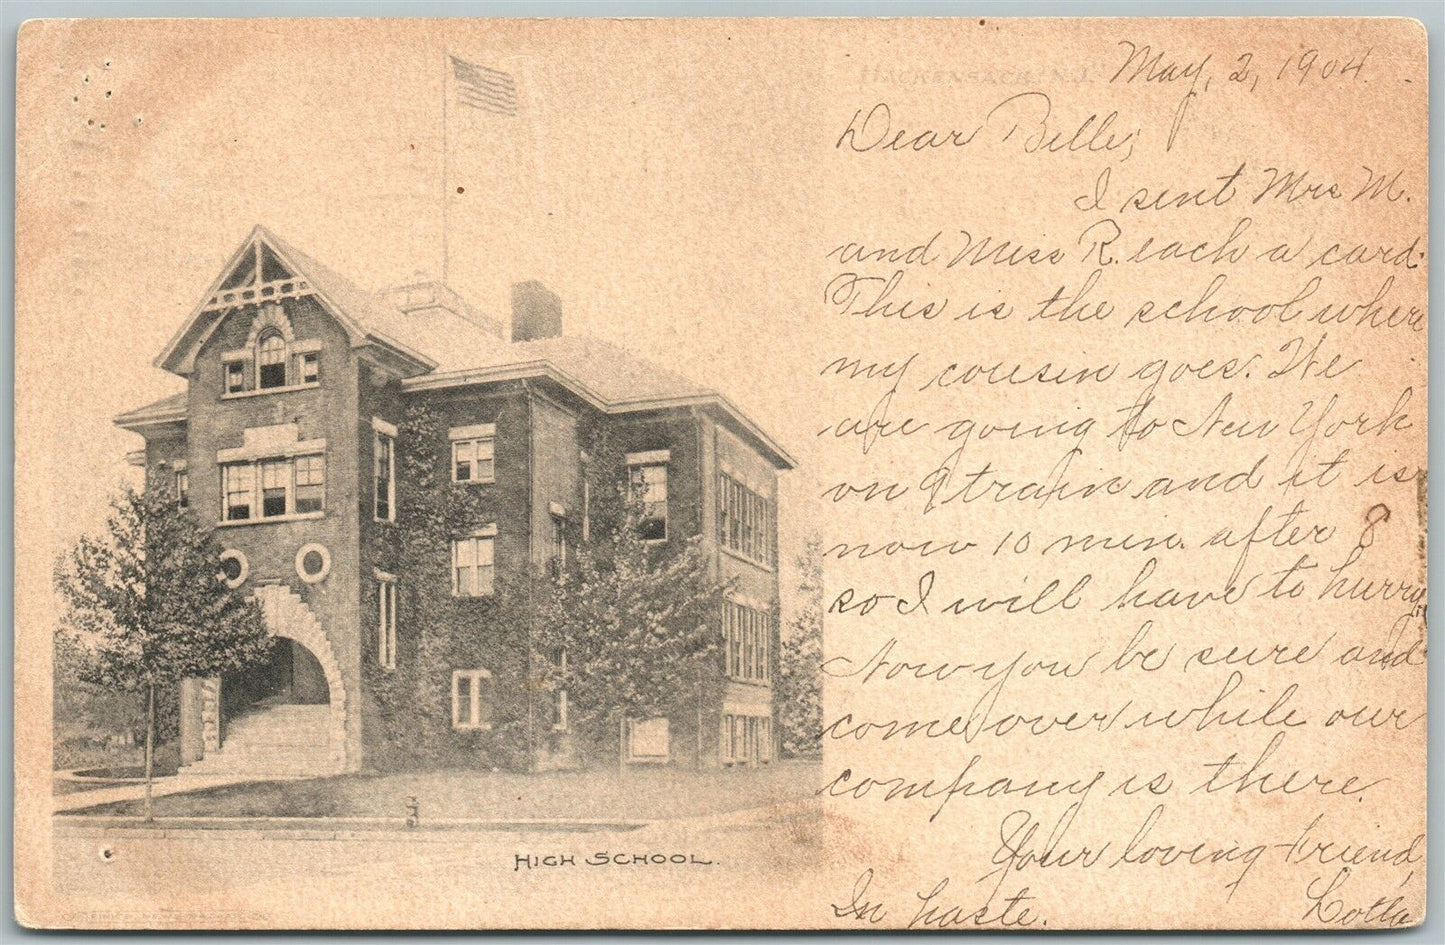 HACKENSACK, N.J.
May, 2, 1904.
Dear Belle;
I sent Mrs M.
and Miss R. each a card.
This is the school where
my cousin goes. We
are going to New York
on 9 train and it is
now 10 min. after 8
so I will have to hurry.
Now you be sure and
come over while our
company is there.
Your loving friend,
In haste. Lotta
HIGH SCHOOL.